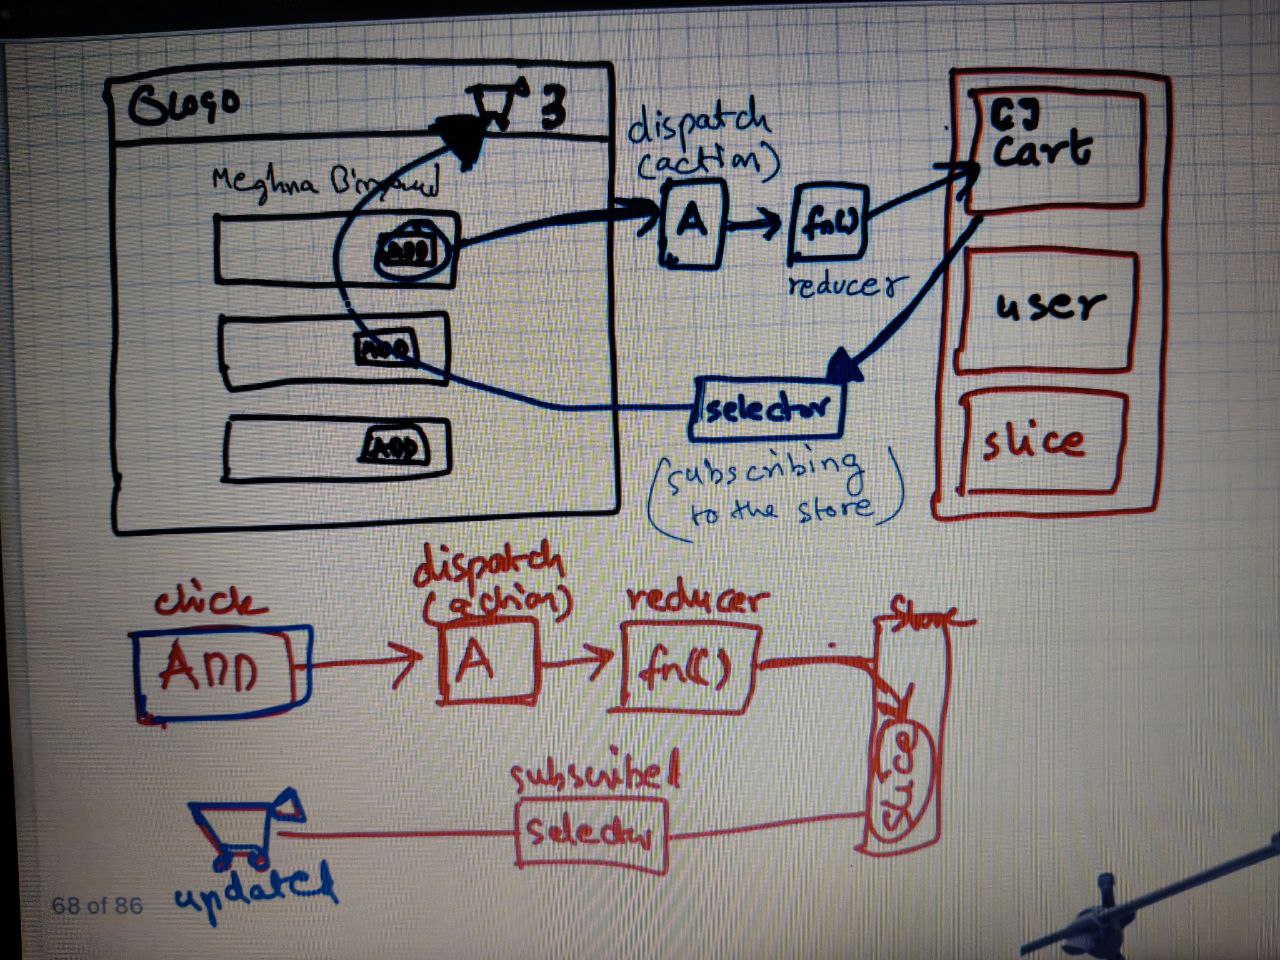 Logo
3
Meghna Biryani
ADD
ADD
ADD
dispatch
(action)
A
fn()
reducer
[]
Cart
user
slice
selector
(subscribing
to the store)
click
ADD
dispatch
(action)
A
reducer
fn()
Store
slice
subscribed
selector
updated
68 of 86